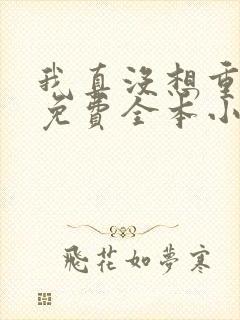 我真没想重
免費全本小
飛花如夢寒